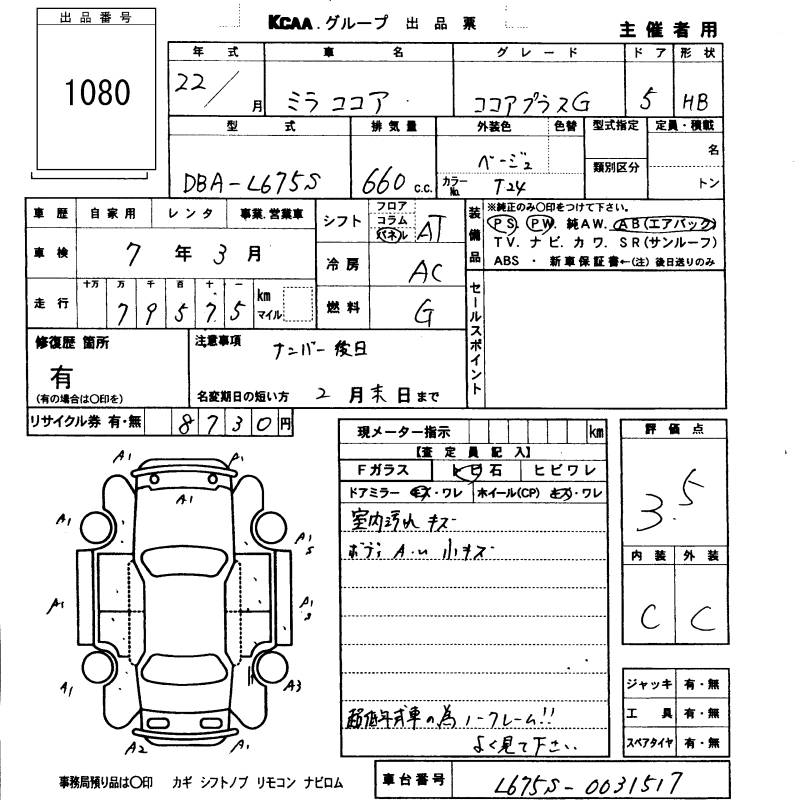 出品番号
1080
KCAA.グループ 出品票
主催者用
年式 車名 グレード ドア 形状
22/ 月 ミラココア ココアプラスG 5 HB
型式 排気量 外装色 色替 型式指定 定員・積載
DBA-L675S 660 c.c. ベージュ 名
カラーNo. T24 類別区分 トン
車歴 自家用 レンタ 事業.営業車
車検 7年3月
走行 十万 万 千 百 十 一
79575 km マイル
シフト フロア コラム パネル AT
冷房 AC
燃料 G
装備品 ※純正のみ〇印をつけて下さい。
PS. PW. 純AW. AB(エアバック)
TV. ナビ. カワ. SR(サンルーフ)
ABS ・ 新車保証書←(注)後日送りのみ
セールスポイント
修復歴 箇所
有
(有の場合は〇印を)
注意事項
ナンバー後日
名変期日の短い方 2月末日まで
リサイクル券 有・無 8730円
現メーター指示 km
【査定員記入】
Fガラス トビ石 ヒビワレ
ドアミラー キズ・ワレ ホイール(CP) キズ・ワレ
室内汚れ キズ
ボデー A・U 小キズ
超低年式車の為ノークレーム!!
よく見て下さい.
評価点
3.5
内装 外装
C C
ジャッキ 有・無
工具 有・無
スペアタイヤ 有・無
A1 A1
A1
A1 A1 S
A1 A1 S
A1 A3
A2 A1
事務局預り品は〇印 カギ シフトノブ リモコン ナビロム
車台番号 L675S-0031517